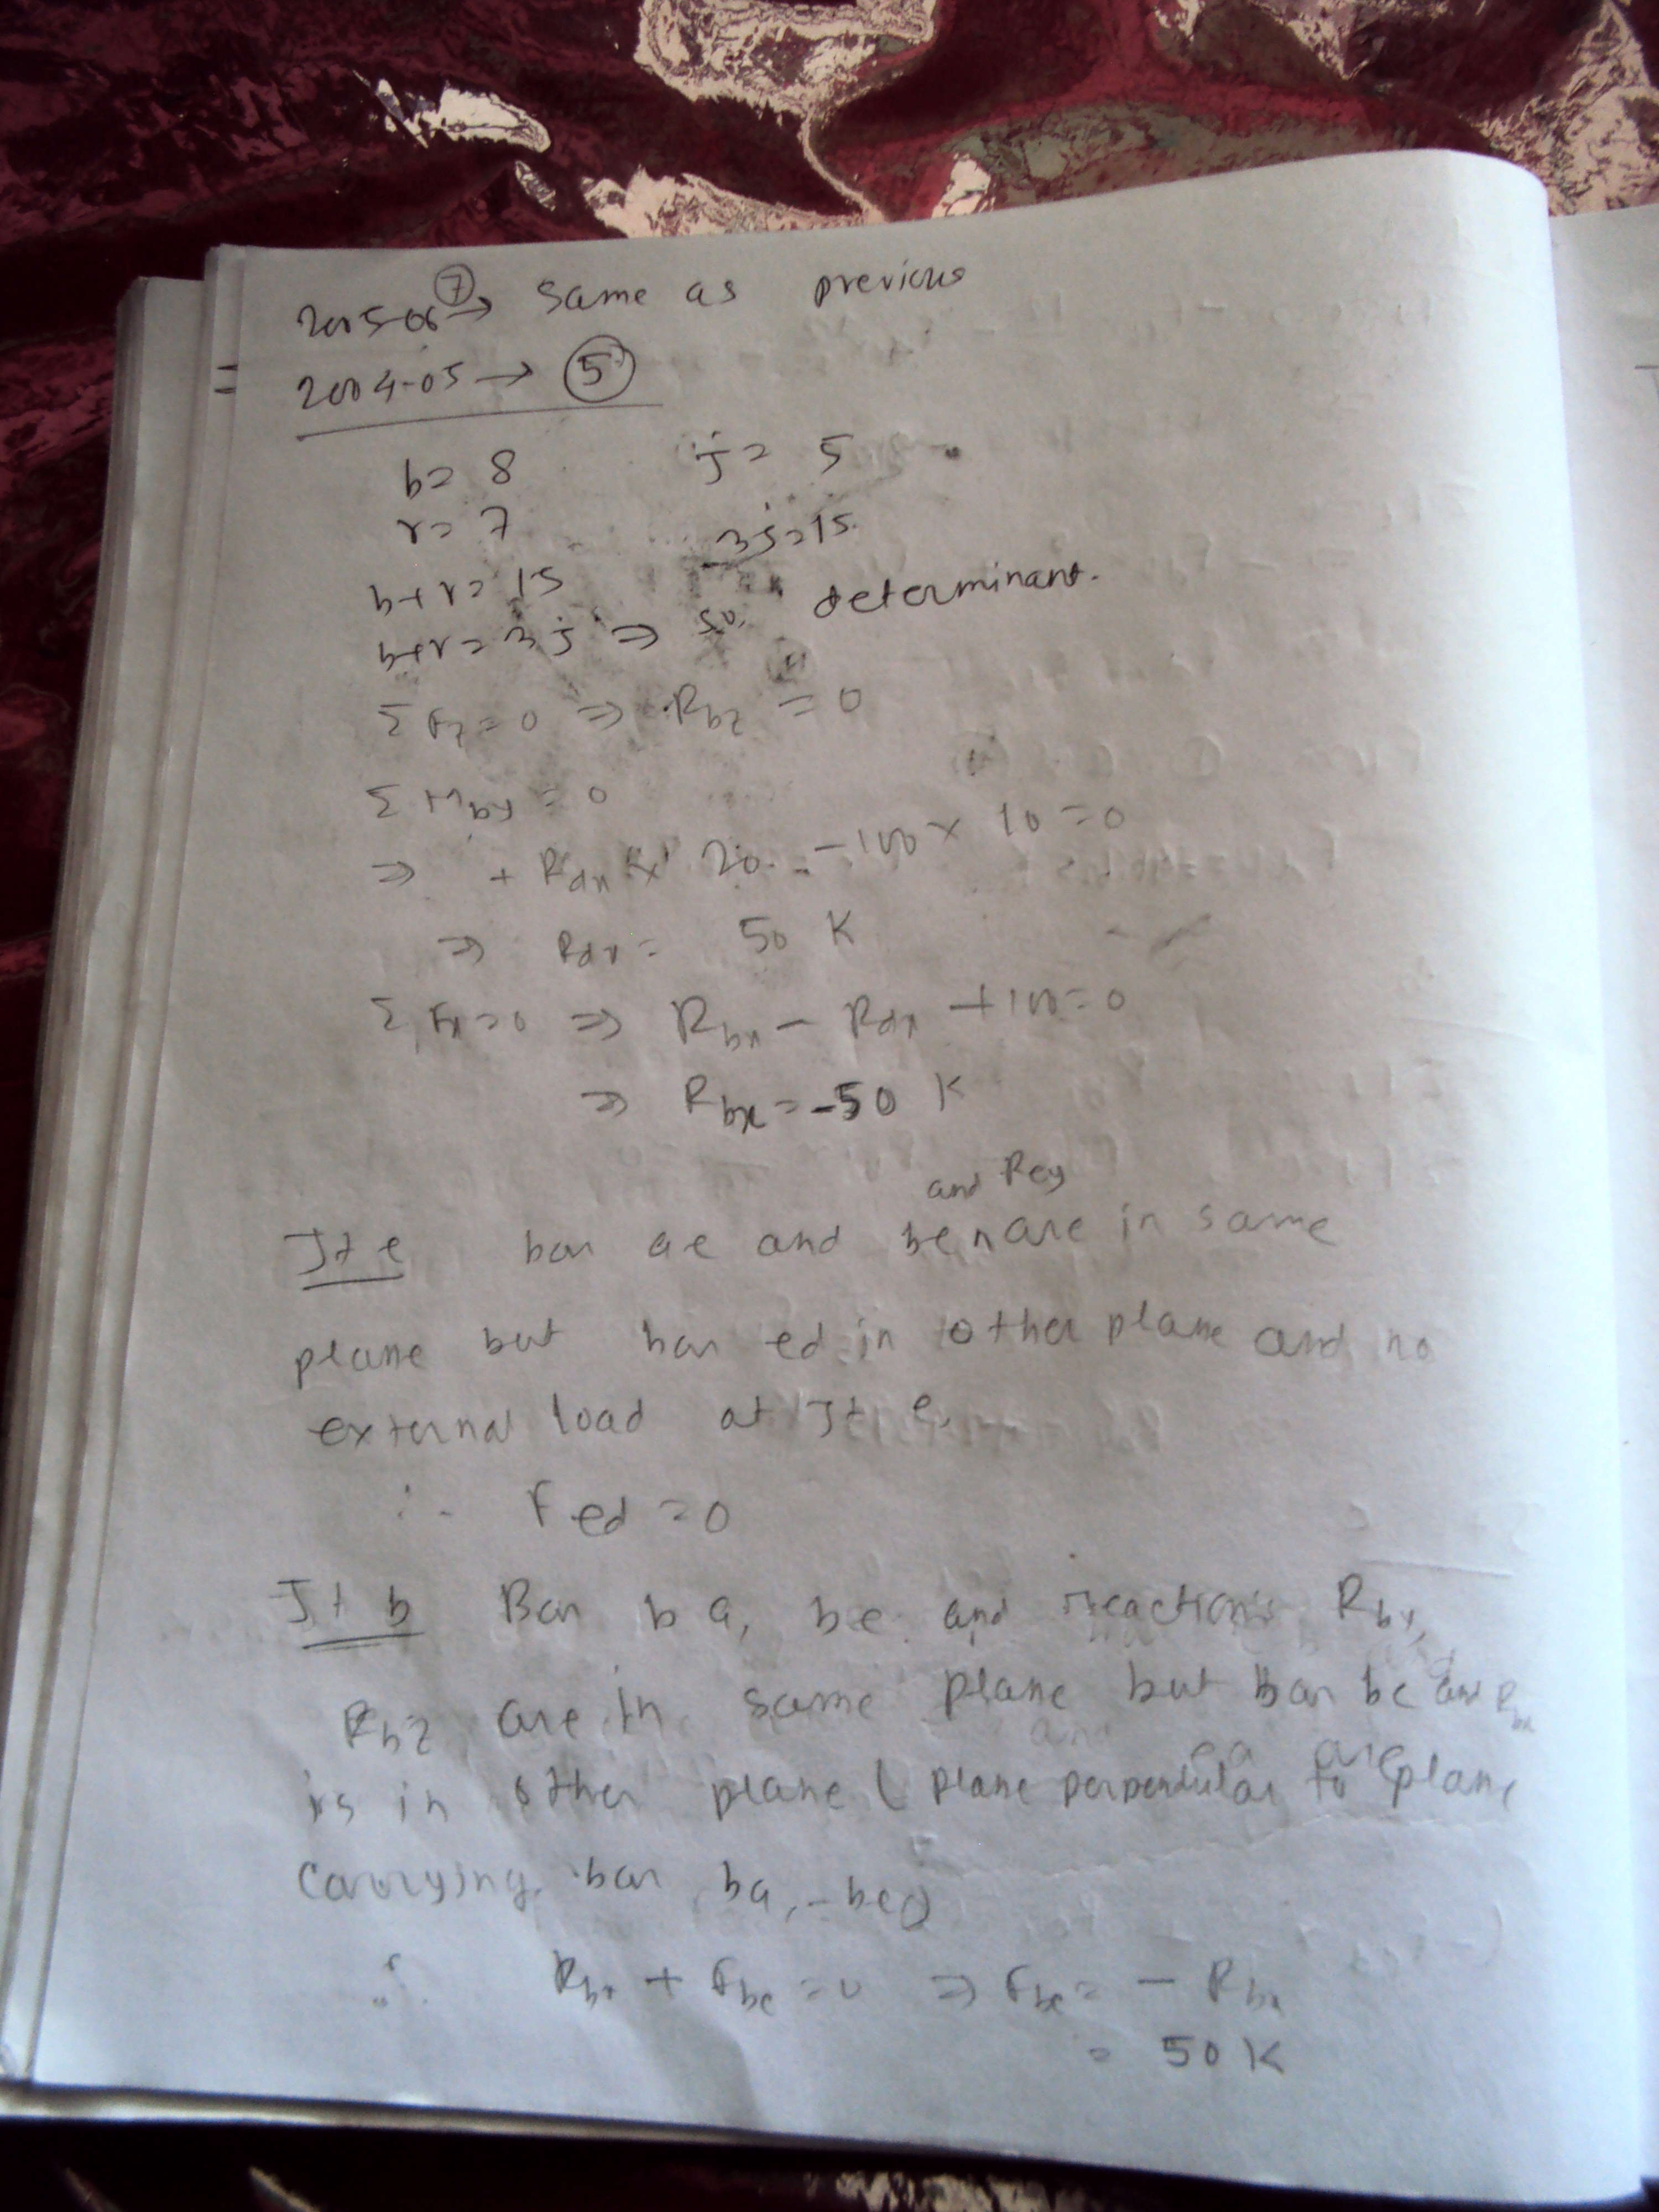 2005-06 ⑦ → Same as previous
2004-05 → ⑤
b = 8 j = 5
r = 7 3j = 15
b+r = 15
b+r = 3j ⇒ so, determinant.
Σ Fz = 0 ⇒ Rbz = 0
Σ Mby = 0
⇒ + Rdx × 20 - 100 × 10 = 0
⇒ Rdx = 50 K
Σ Fx = 0 ⇒ Rbx - Rdx + 100 = 0
⇒ Rbx = -50 K
and Rey
Jt e bar ae and be are in same
plane but bar ed in other plane and no
external load at Jt e.
∴ Fed = 0
Jt b Bar ba, be and reactions Rby,
Rbz are in same plane but bar bc and Rbx
is in other plane (plane perpendular to plane
carrying bar ba, be)
∴ Rbx + Fbc = 0 ⇒ Fbc = - Rbx
= 50 K